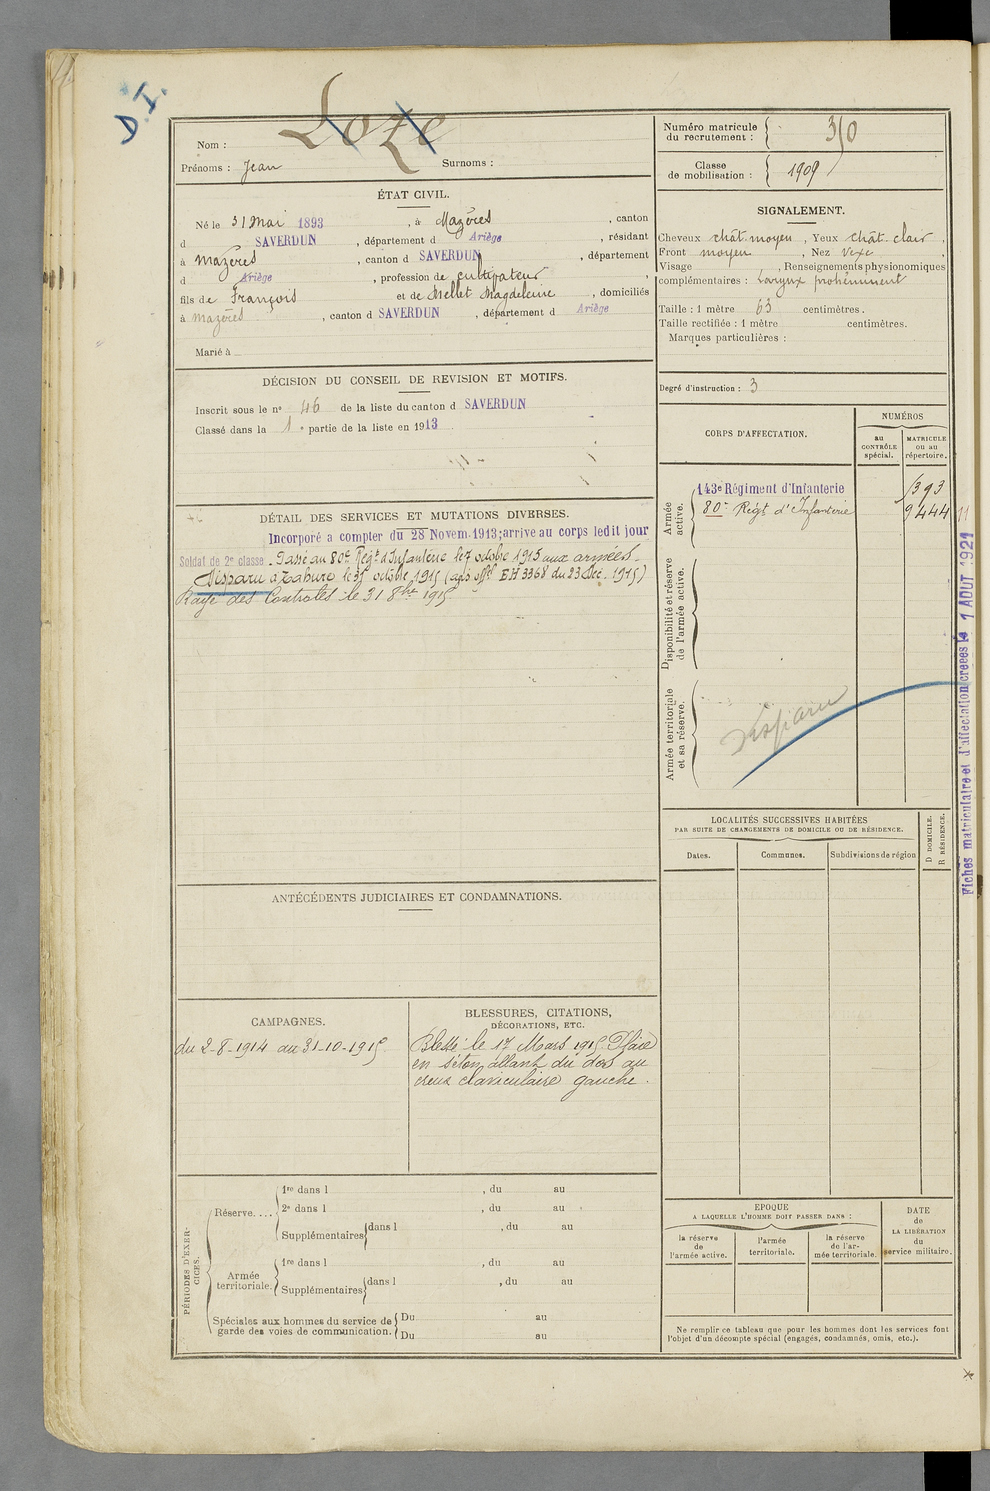 D.I.
Nom : Loze
Prénoms : Jean Surnoms :
Numéro matricule
du recrutement : 350
Classe
de mobilisation : 1909
ÉTAT CIVIL.
Né le 31 Mai 1893, à Mazères, canton
d SAVERDUN, département d Ariège, résidant
à Mazères, canton d SAVERDUN, département
d Ariège, profession de cultivateur,
fils de François et de Mellet Magdeleine, domiciliés
à Mazères, canton d SAVERDUN, département d Ariège
Marié à
SIGNALEMENT.
Cheveux chât. moyen, Yeux chât. clair,
Front moyen, Nez vexe,
Visage , Renseignements physionomiques
complémentaires : Larynx prohéminent
Taille : 1 mètre 63 centimètres.
Taille rectifiée : 1 mètre centimètres.
Marques particulières :
Degré d'instruction : 3
DÉCISION DU CONSEIL DE REVISION ET MOTIFS.
Inscrit sous le nº 46 de la liste du canton d SAVERDUN
Classé dans la 1 e partie de la liste en 1913
DÉTAIL DES SERVICES ET MUTATIONS DIVERSES.
Incorporé a compter du 28 Novem. 1913; arrive au corps ledit jour
Soldat de 2e classe. Passé au 80e Regt d'Infanterie le 7 octobre 1915 aux armées.
Disparu à Tahure le 31 octobre 1915 (avis offel EH 3368 du 23 Dec. 1915)
Rayé des Controles le 31 8bre 1915
CORPS D'AFFECTATION.
NUMÉROS
au
CONTRÔLE
spécial.
MATRICULE
ou au
répertoire.
Armée
active.
143e Régiment d'Infanterie 1393
80e Regt d'Infanterie 9444 11
Disponibilité et réserve
de l'armée active.
Armée territoriale
et sa réserve.
Disparu
Fiches matriculaire et d'affectation créées le 1 AOUT 1921
LOCALITÉS SUCCESSIVES HABITÉES
PAR SUITE DE CHANGEMENTS DE DOMICILE OU DE RÉSIDENCE.
Dates. Communes. Subdivisions de région
D DOMICILE.
R RÉSIDENCE.
ANTÉCÉDENTS JUDICIAIRES ET CONDAMNATIONS.
CAMPAGNES.
du 2-8-1914 au 31-10-1915
BLESSURES, CITATIONS,
DÉCORATIONS, ETC.
Blessé le 17 Mars 1915 Plaie
en séton allant du dos au
creux claviculaire gauche.
PÉRIODES D'EXER-
CICES.
Réserve....
1re dans l , du au
2e dans l , du au
Supplémentaires dans l , du au
Armée
territoriale.
1re dans l , du au
Supplémentaires dans l , du au
Spéciales aux hommes du service de
garde des voies de communication.
Du au
Du au
ÉPOQUE
A LAQUELLE L'HOMME DOIT PASSER DANS :
la réserve
de
l'armée active.
l'armée
territoriale.
la réserve
de l'ar-
mée territoriale.
DATE
de
LA LIBÉRATION
du
service militaire.
Ne remplir ce tableau que pour les hommes dont les services font
l'objet d'un décompte spécial (engagés, condamnés, omis, etc.).